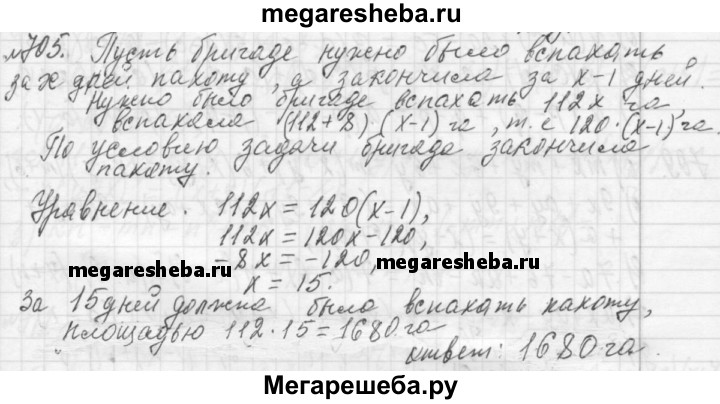 megaresheba.ru
№705. Пусть бригаде нужно было вспахать
за x дней пахоту, а закончила за x-1 дней.
Нужно было бригаде вспахать 112x га,
вспахала (112+8)·(x-1) га, т.е 120·(x-1) га
По условию задачи бригада закончила
пахоту.
Уравнение. 112x = 120(x-1),
112x = 120x-120,
-8x = -120,
megaresheba.ru megaresheba.ru
x = 15.
За 15 дней должна была вспахать пахоту,
площадью 112·15=1680 га
ответ: 1680 га.
Мегарешеба.ру